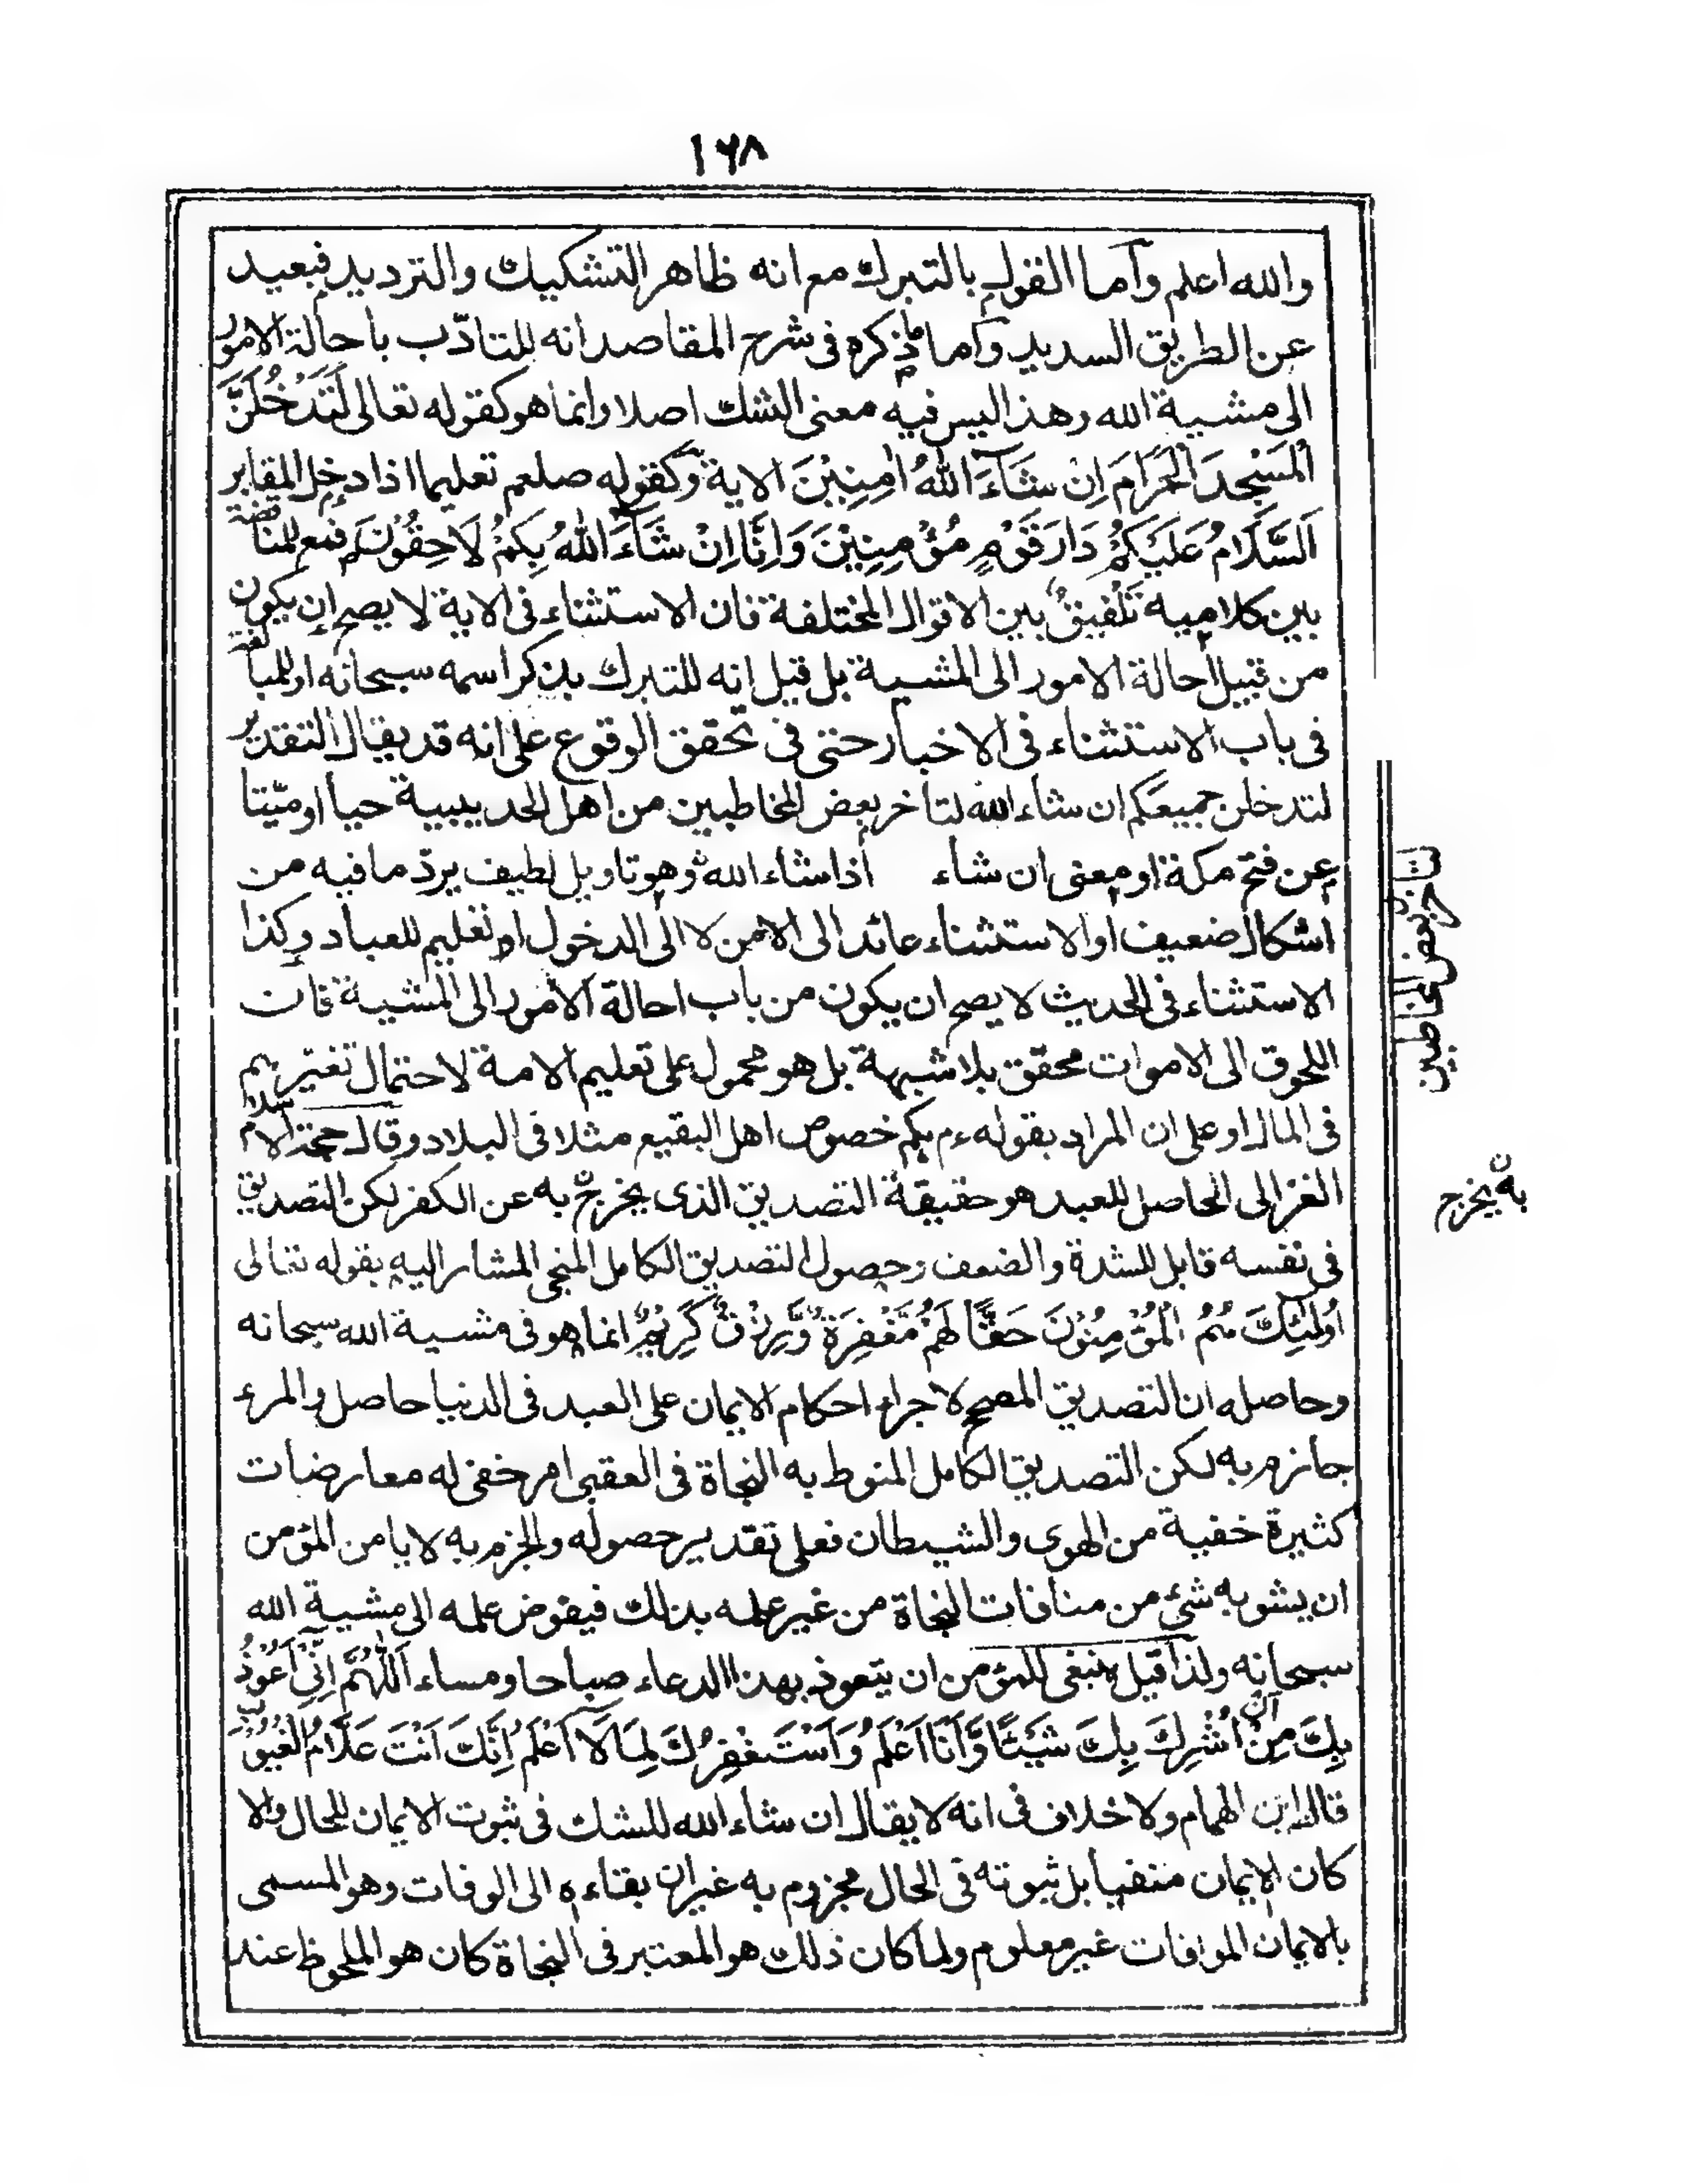 ١٦٨
والله اعلم وأما القول بالتبرك مع انه ظاهر التشكيك والترديد فبعيد
عن الطريق السديد وأما ما ذكره فى شرح المقاصد انه للتادّب باحالة الامور
الى مشية الله وهذا ليس فيه معنى الشك اصلا وانما هو كقوله تعالى لَتَدْخُلُنَّ
الْمَسْجِدَ الْحَرَامَ اِنْ شَآءَ اللّٰهُ اٰمِنِيْنَ الاية وكقوله صلعم تعليما اذا دخل المقابر
اَلسَّلَامُ عَلَيْكُمْ دَارَ قَوْمٍ مُؤْمِنِيْنَ وَاِنَّا اِنْ شَآءَ اللّٰهُ بِكُمْ لَاحِقُوْنَ فنع للمناقضة
بين كلاميه تلفيق بين الاقوال المختلفة فان الاستثناء فى الاية لا يصح ان يكون
من قبيل احالة الامور الى المشية بل قيل انه للتبرك بذكر اسمه سبحانه او للمبالغة
فى باب الاستثناء فى الاخبار حتى فى تحقق الوقوع على انه قد يقال التقدير
لتدخلن جميعكم ان شاء الله لتاخر بعض المخاطبين من اهل الحديبية حيا او ميّتا
عن فتح مكة او معنى ان شاء اذا شاء الله وهو تاويل لطيف يردّ ما فيه من
اشكال ضعيف او الاستثناء عائد الى الامن لا الى الدخول او تعليم للعباد وكذا
الاستثناء فى الحديث لا يصح ان يكون من باب احالة الامور الى المشية فان
اللحوق الى الاموات محقق بلا شبهة بل هو محمول على تعليم الامة لاحتمال تغيرهم
فى المال او على ان المراد بقوله ءم بكم خصوص اهل البقيع مثلا فى البلاد وقال حجة الاسلام
الغزالى الحاصل للعبد هو حقيقة التصديق الذى يخرج به عن الكفر لكن التصديق
فى نفسه قابل للشدة والضعف وحصول التصديق الكامل المنجى المشار اليه بقوله تعالى
اُولٰئِكَ هُمُ الْمُؤْمِنُوْنَ حَقًّا لَهُمْ مَّغْفِرَةٌ وَّرِزْقٌ كَرِيْمٌ انما هو فى مشية الله سبحانه
وحاصله ان التصديق المصحح لاجراء احكام الايمان على العبد فى الدنيا حاصل والمرء
جازم به لكن التصديق الكامل المنوط به النجاة فى العقبى امر خفى له معارضات
كثيرة خفية من الهوى والشيطان فعلى تقدير حصوله والجزم به لا يامن المؤمن
ان يشوبه شئ من منافات النجاة من غير علمه بذلك فيفوض علمه الى مشية الله
سبحانه ولذا قيل ينبغى للمؤمن ان يتعوذ بهذا الدعاء صباحا ومساء اَللّٰهُمَّ اِنِّىْ اَعُوْذُ
بِكَ مِنْ اَنْ اُشْرِكَ بِكَ شَيْئًا وَّاَنَا اَعْلَمُ وَاَسْتَغْفِرُكَ لِمَا لَا اَعْلَمُ اِنَّكَ اَنْتَ عَلَّامُ الْغُيُوْبِ
قال ابن الهمام ولا خلاف فى انه لا يقال ان شاء الله للشك فى ثبوت الايمان للحال والا
كان الايمان منفيا بل ثبوته فى الحال مجزوم به غير ان بقاءه الى الوفات وهو المسمى
بالايمان الموافات غير معلوم ولما كان ذلك هو المعتبر فى النجاة كان هو الملحوظ عند
لتاخر بعض المخاطبين
به يخرج